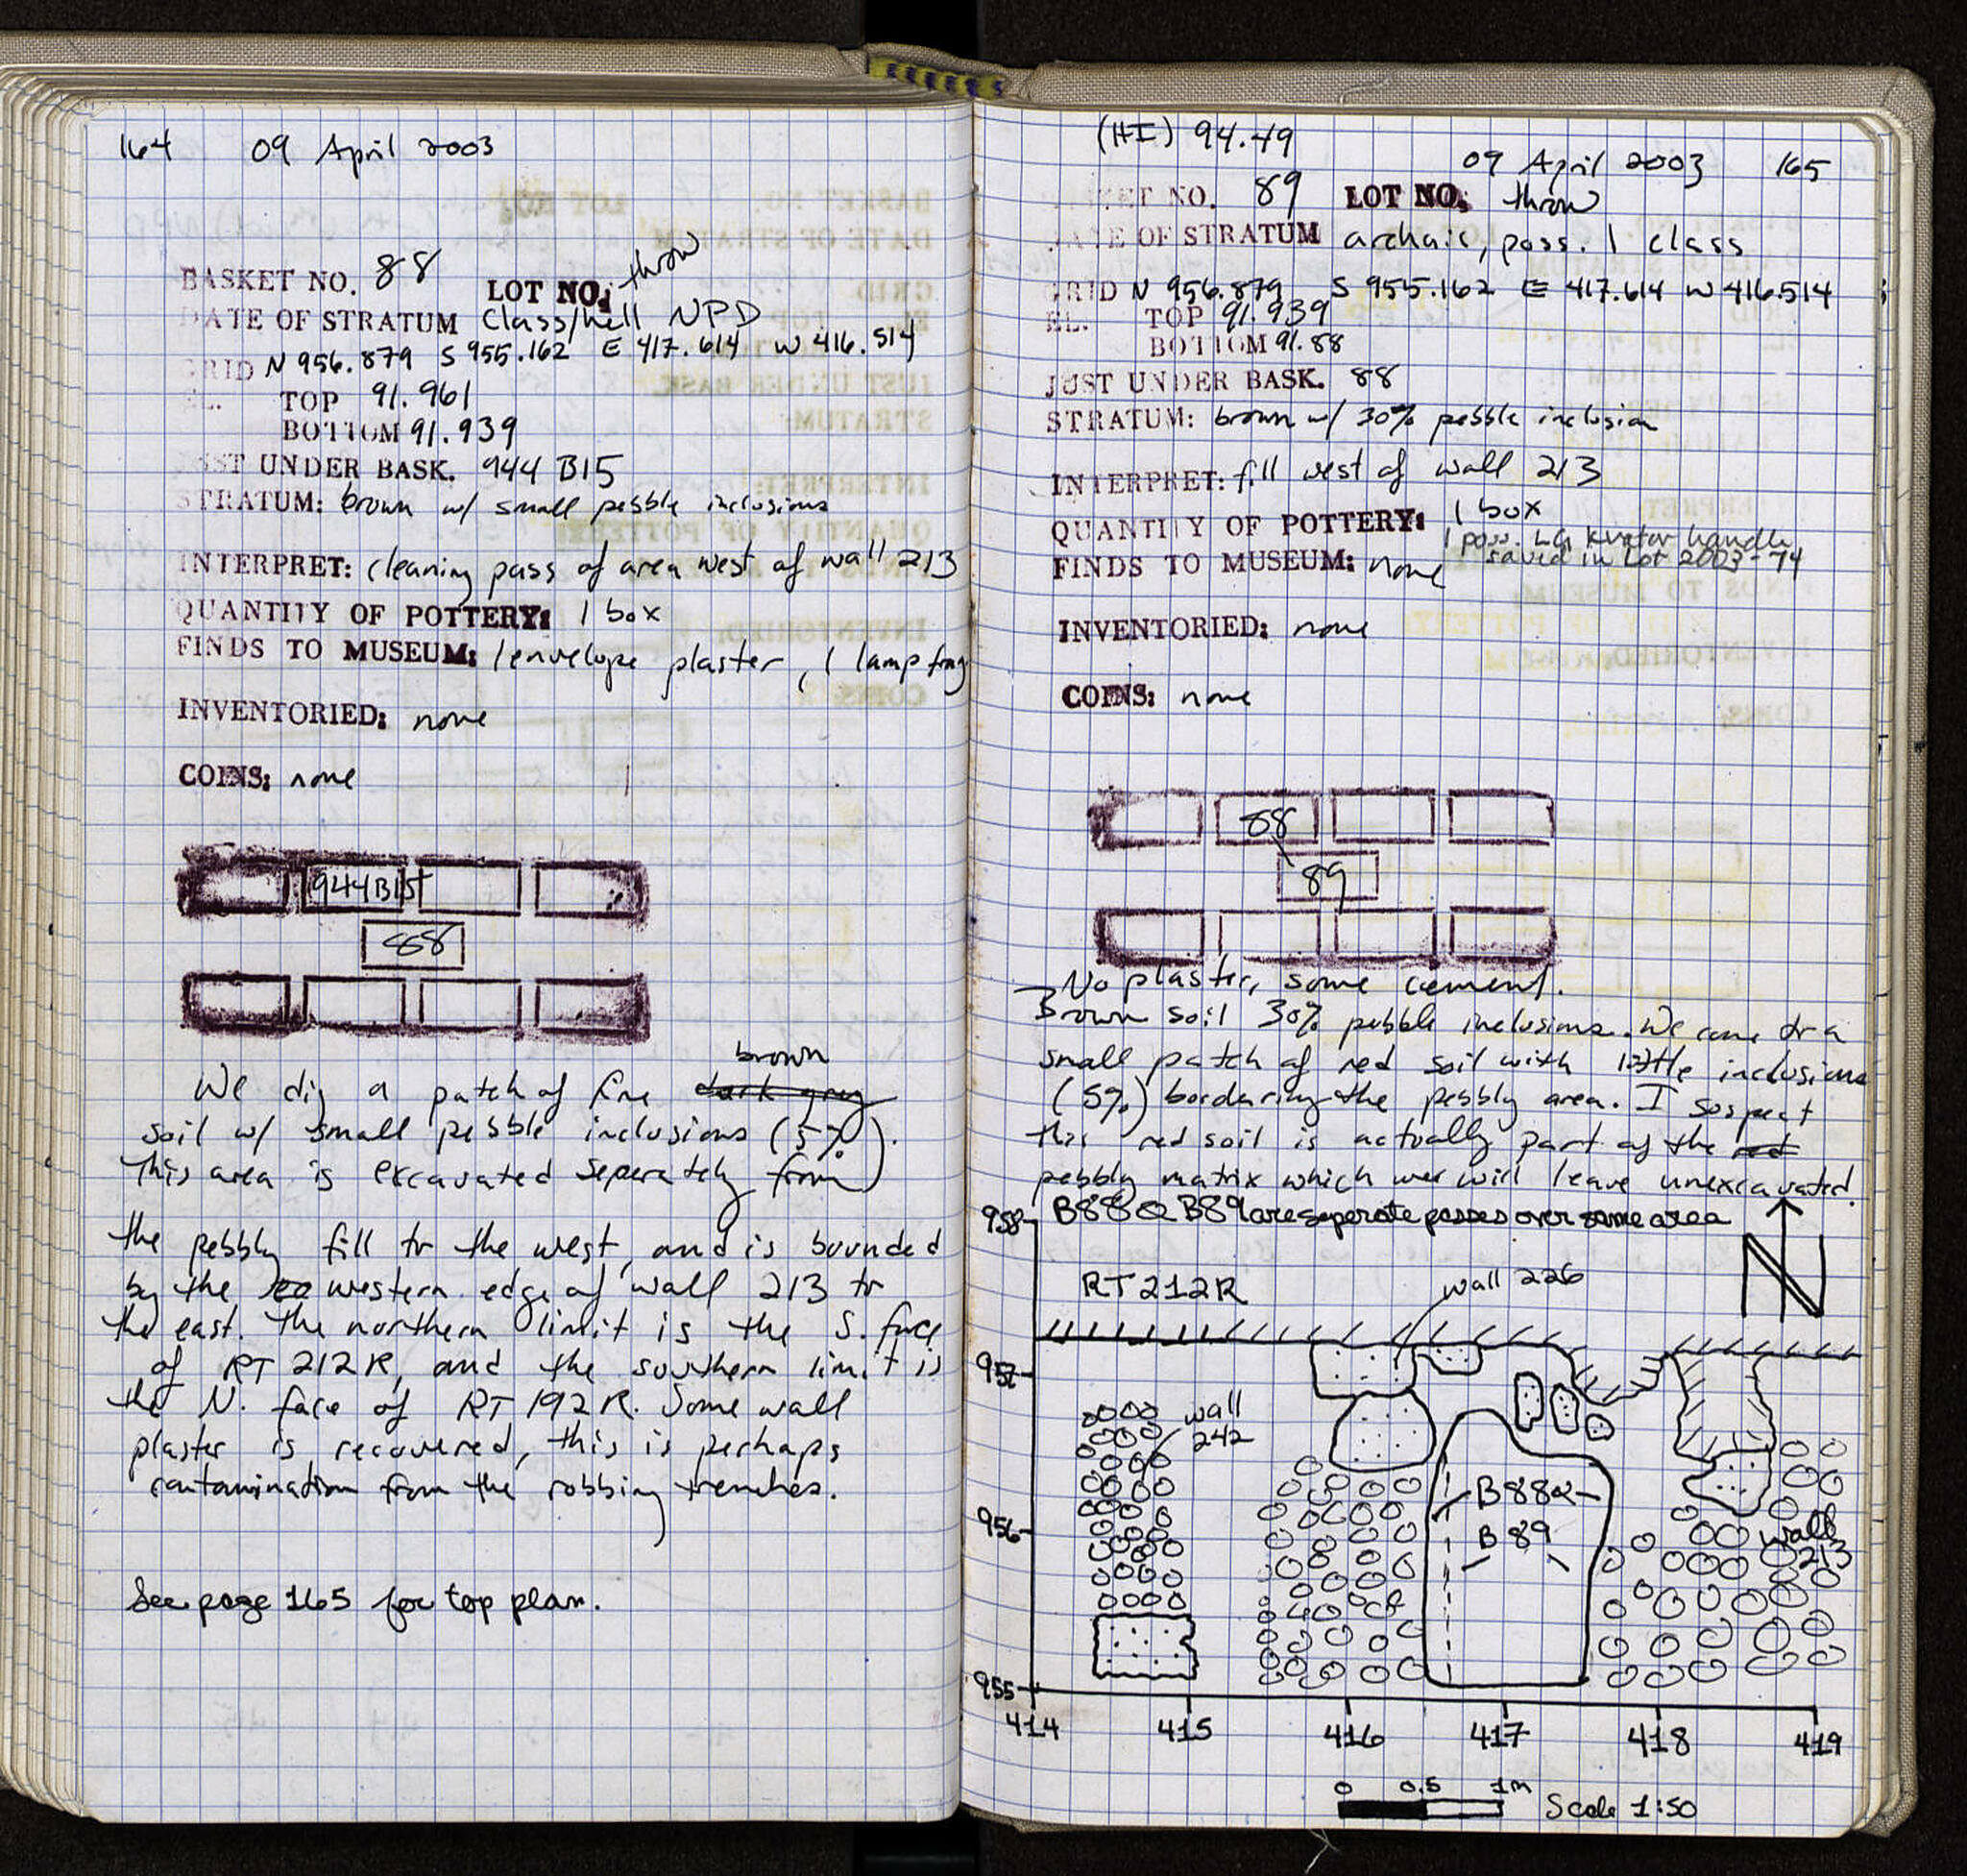 164 09 April 2003
BASKET NO. 88 LOT NO. throw
DATE OF STRATUM Class/hell NPD
GRID N 956.879 S 955.162 E 417.614 W 416.514
EL. TOP 91.961
BOTTOM 91.939
JUST UNDER BASK. 944 B15
STRATUM: brown w/ small pebble inclusions
INTERPRET: cleaning pass of area west of wall 213
QUANTITY OF POTTERY: 1 box
FINDS TO MUSEUM: 1 envelope plaster, 1 lamp frag
INVENTORIED: none
COINS: none
944B15
88
We dig a patch of fine dark grey brown
soil w/ small pebble inclusions (5%).
This area is excavated seperately from
the pebbly fill to the west, and is bounded
by the ea western edge of wall 213 to
the east. The northern limit is the S. face
of RT 212R, and the southern limit is
the N. face of RT 192R. Some wall
plaster is recovered, this is perhaps
contamination from the robbing trenches.
See page 165 for top plan.
(HI) 94.49
09 April 2003 165
BASKET NO. 89 LOT NO. throw
DATE OF STRATUM archaic, poss. 1 class
GRID N 956.879 S 955.162 E 417.614 W 416.514
EL. TOP 91.939
BOTTOM 91.88
JUST UNDER BASK. 88
STRATUM: brown w/ 30% pebble inclusion
INTERPRET: fill west of wall 213
QUANTITY OF POTTERY: 1 box
1 poss. LG krater handle
saved in Lot 2003-74
FINDS TO MUSEUM: none
INVENTORIED: none
COINS: none
88
89
No plaster, some cement.
Brown soil 30% pebble inclusions. We come to a
small patch of red soil with little inclusions
(5%) bordering the pebbly area. I suspect
this red soil is actually part of the red
pebbly matrix which we will leave unexcavated.
B88 & B89 are seperate passes over same area
958
N
RT 212R
wall 226
957
wall
242
B88 &
B89
956
wall
213
955
414 415 416 417 418 419
0 0.5 1m
Scale 1:50